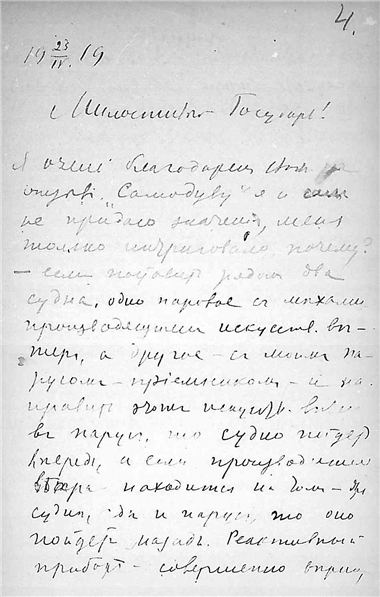 4.
19 23/IV 19
Милостивый Государь!
Я очень благодарен Вам за
отзыв. "Самодуву" я и сам
не придаю значения, меня
только интриговало, почему?
— если поставить рядом два
судна, одно паровое съ мѣхами
производящими искусств. вѣ-
теръ, а другое — съ моимъ па-
русомъ — пріемникомъ — и на-
править этотъ искусств.
въ парусъ, то судно пойдетъ
впередъ, а если производители
вѣтра находятся на томъ-же
суднѣ, гдѣ и парусъ, то оно
пойдетъ назадъ. Реактивный
приборъ — совершенно вѣрно,